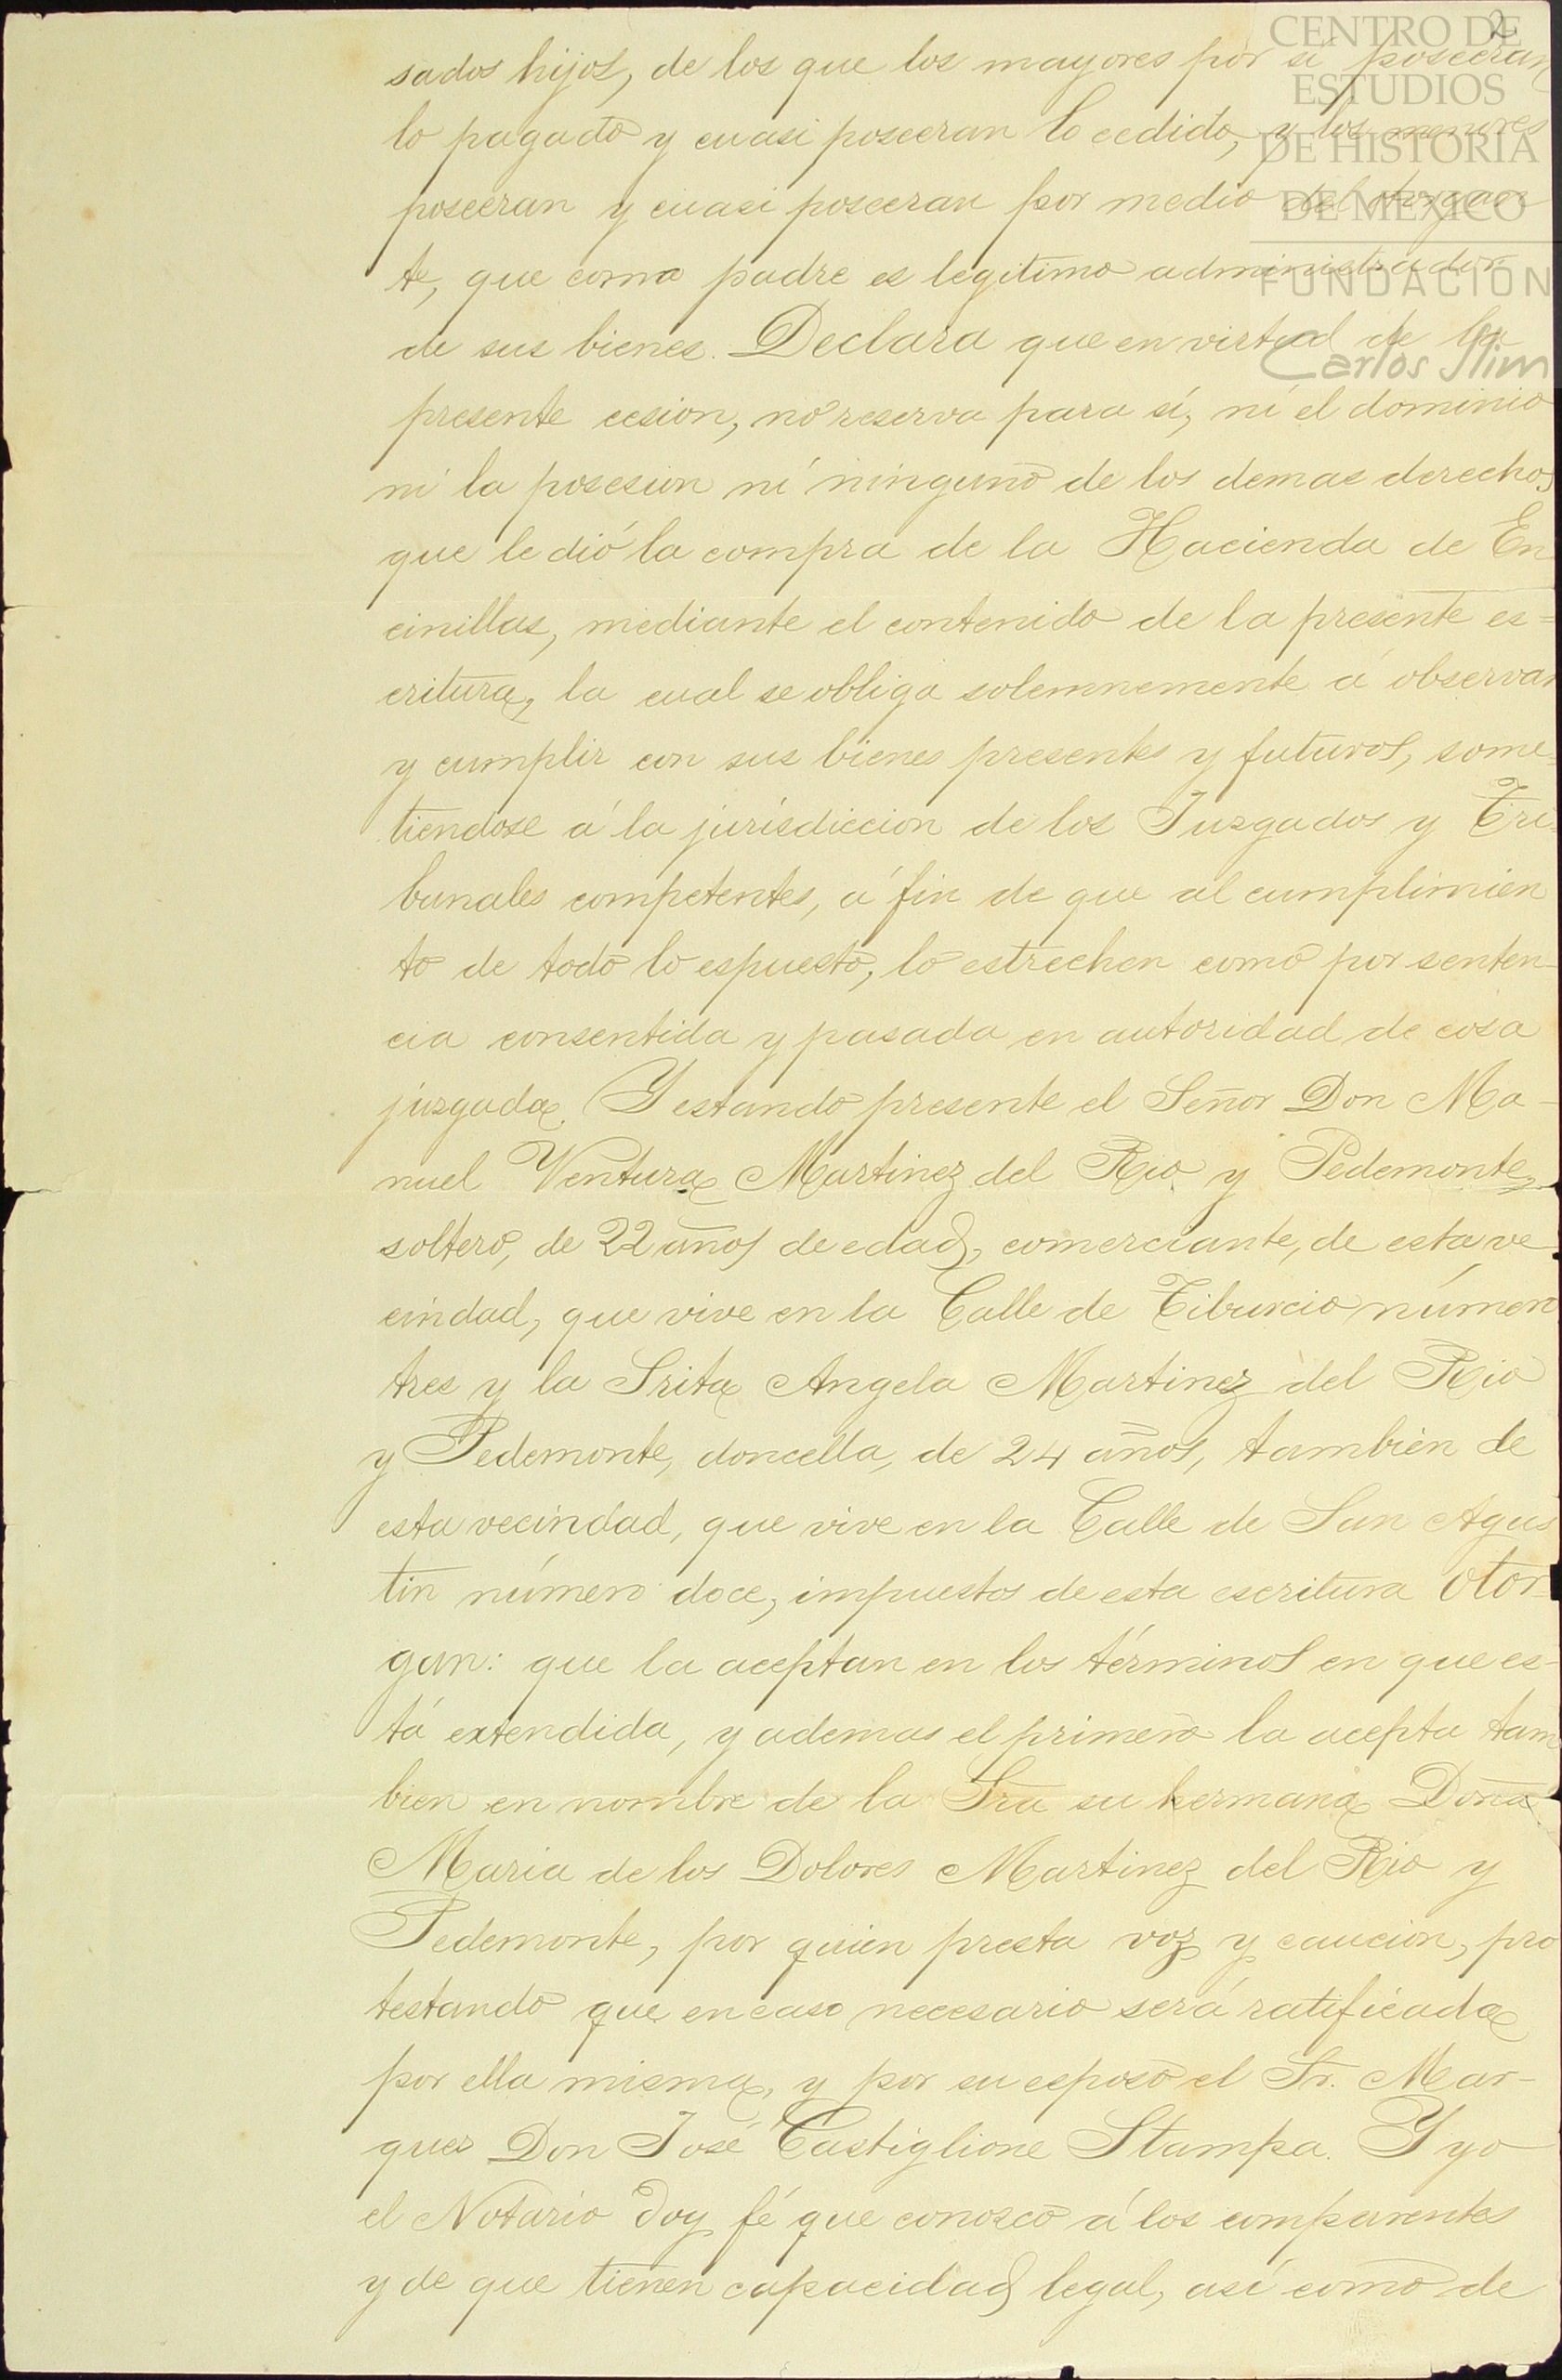 2
CENTRO DE
ESTUDIOS
DE HISTORIA
DE MEXICO
FUNDACION
Carlos Slim
sados hijos, de los que los mayores por sí poseeran
lo pagado y cuasi poseeran lo cedido, y los menores
poseeran y cuasi poseeran por medio del otorgan
te, que como padre es legitimo administrador
de sus bienes. Declara que en virtud de la
presente cesion, no reserva para sí, ni el dominio
ni la posesion ni ninguno de los demas derechos
que le dió la compra de la Hacienda de En
cinillas, mediante el contenido de la presente es=
critura, la cual se obliga solemnemente á observar
y cumplir con sus bienes presentes y futuros, some=
tiendose á la jurisdiccion de los Juzgados y Tri=
bunales competentes, á fin de que al cumplimien
to de todo lo espuesto, lo estrechen como por senten-
cia consentida y pasada en autoridad de cosa
juzgada. Y estando presente el Señor Don Ma-
nuel Ventura Martinez del Rio y Pedemonte,
soltero, de 22 años de edad, comerciante, de esta ve
cindad, que vive en la Calle de Tiburcio número
tres y la Srita Angela Martinez del Rio
y Pedemonte, doncella, de 24 años, tambien de
esta vecindad, que vive en la Calle de San Agus
tin número doce, impuestos de esta escritura otor-
gan: que la aceptan en los términos en que es-
tá extendida, y ademas el primero la acepta tam
bien en nombre de la Sra su hermana Doña
Maria de los Dolores Martinez del Rio y
Pedemonte, por quien presta voz y caucion, pro
testando que en caso necesario será ratificada
por ella misma, y por su esposo el Sr. Mar-
ques Don José Castiglione Stampa. Y yo
el Notario doy fé que conozco á los comparentes
y de que tienen capacidad legal, así como de